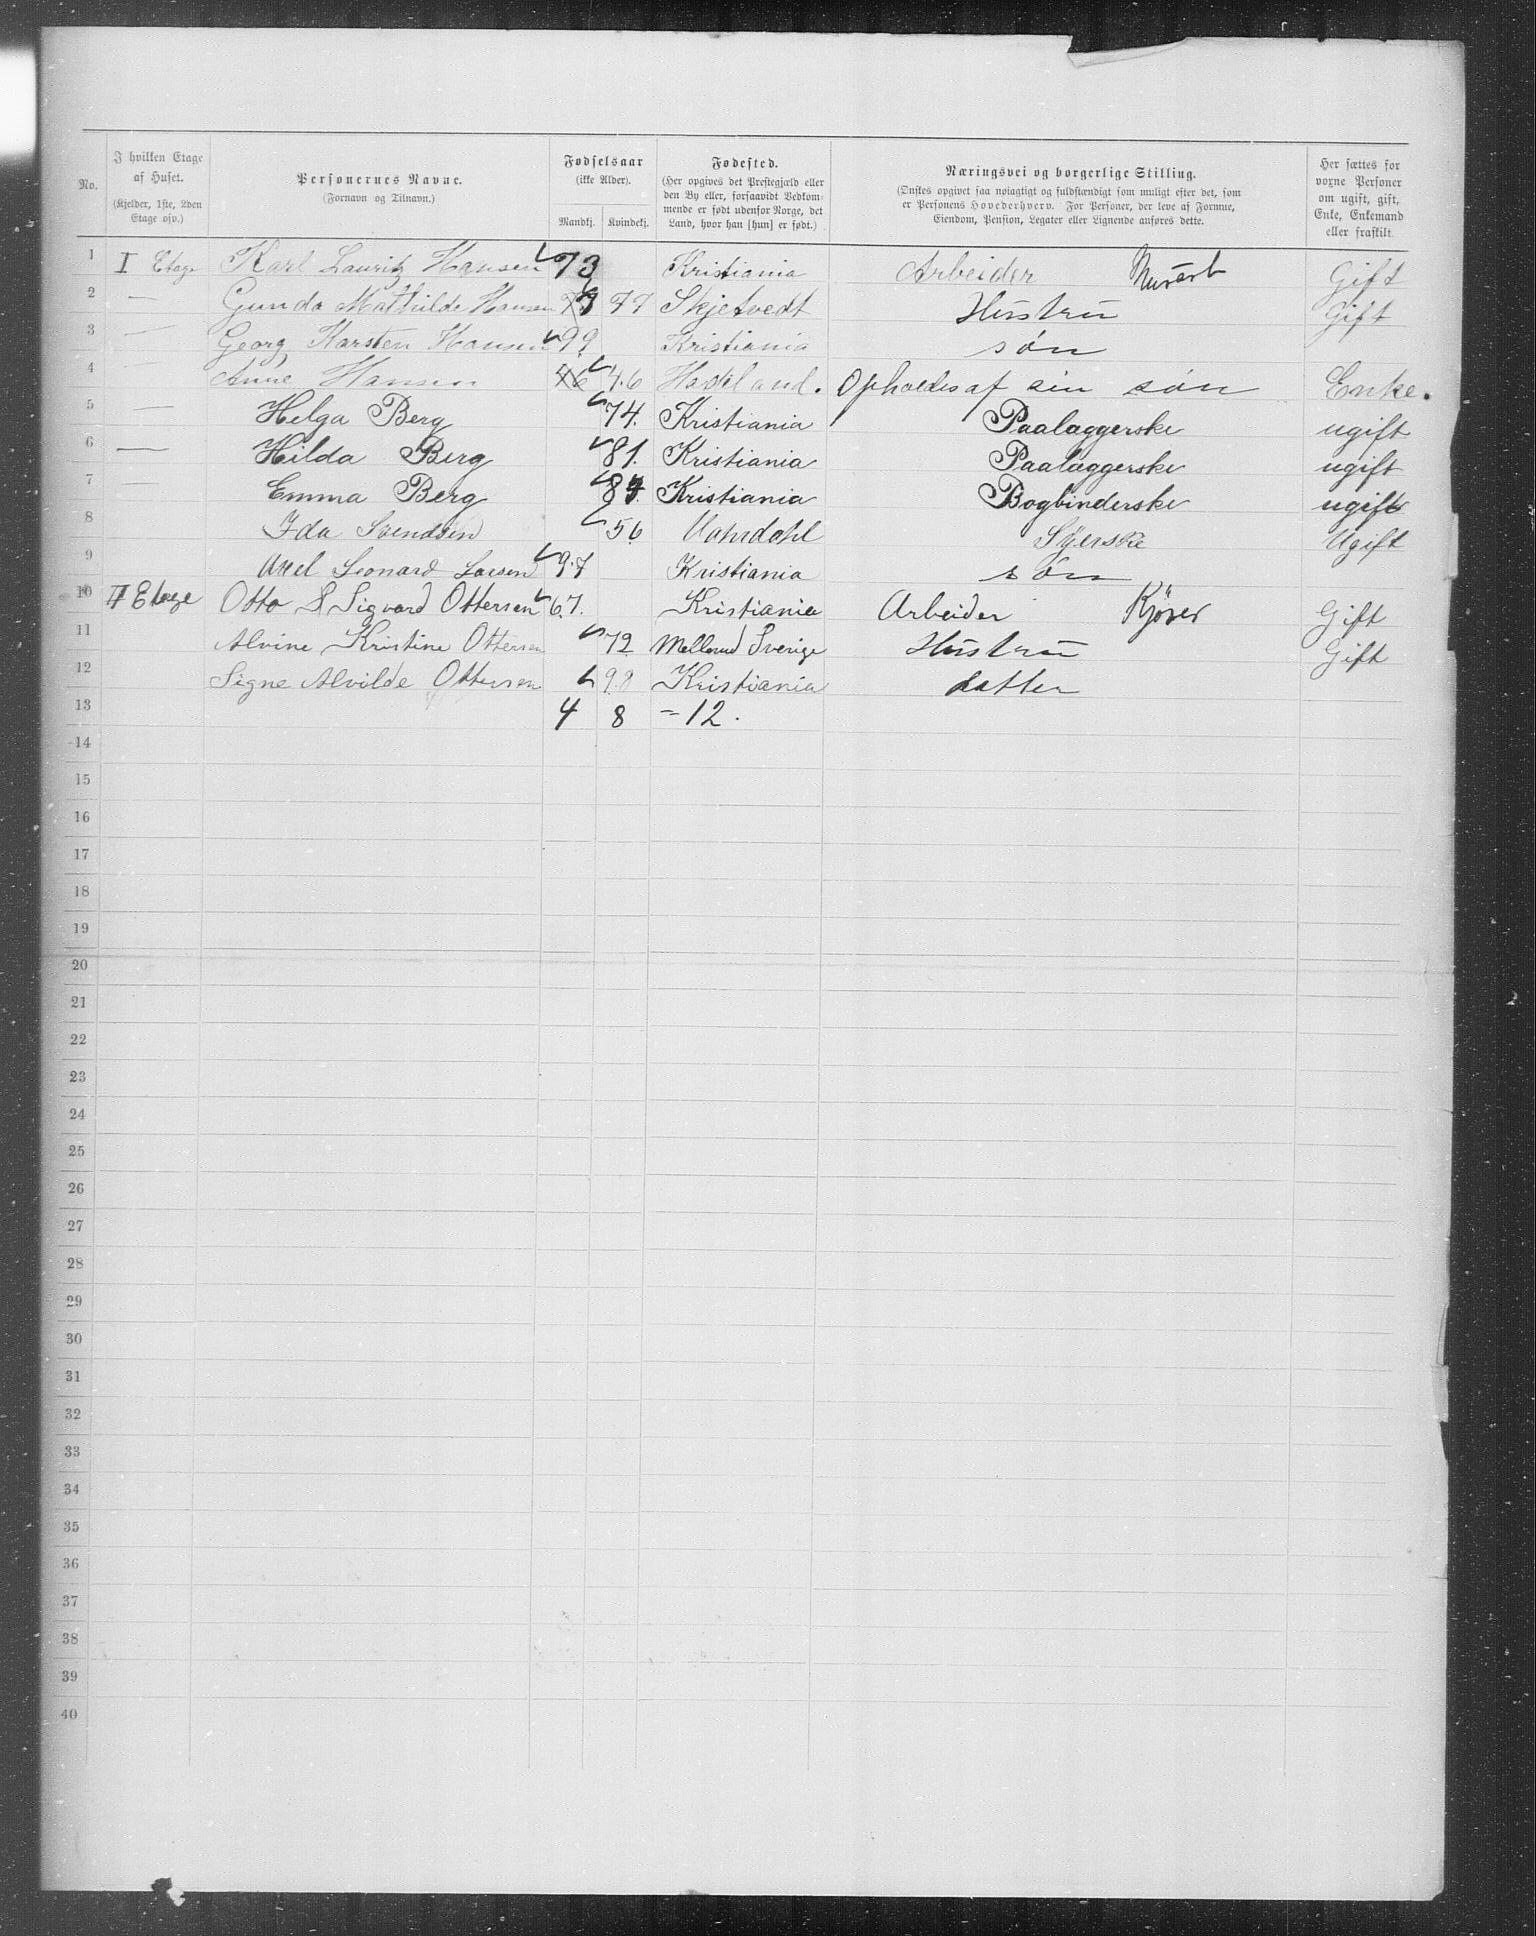 No.
I hvilken Etage af Huset. (Kjelder, 1ste, 2den Etage osv.)
Personernes Navne. (Fornavn og Tilnavn.)
Fødselsaar (ikke Alder). Mandkj. Kvindekj.
Fødested. (Her opgives det Prestegjæld eller den By eller, forsaavidt Vedkommende er født udenfor Norge, det Land, hvor han [hun] er født.)
Næringsvei og borgerlige Stilling. (Ønskes opgivet saa nøiagtigt og fuldstændigt som muligt efter det, som er Personens Hovederhverv. For Personer, der leve af Formue, Eiendom, Pension, Legater eller Lignende anføres dette.
Her sættes for voxne Personer om ugift, gift, Enke, Enkemand eller fraskilt.
1 I Etage Karl Lauritz Hansen 73 Kristiania Arbeider Gift
2 — Gunda Mathilde Hansen 77 Skjetvedt Hustru Gift
3 — Georg Karsten Hansen 99 Kristiania søn
4 — Anne Hansen 46 46 Hadeland. Opholdes af sin søn Enke.
5 — Helga Berg 74. Kristiania Paalæggerske ugift
6 — Hilda Berg 81. Kristiania Paalæggerske ugift
7 — Emma Berg Kristiania Bogbinderske ugift
8 Ida Svendsen 56 Syerske Ugift
9 Axel Leonard Larsen 97 Kristiania søn
10 II Etage Otto S Sigvard Ottersen 67. Kristiania Arbeider Kjører Gift
11 Alvine Kristine Ottersen 72 Mellerud Sverige Hustru Gift
12 Signe Alvilde Ottersen 98 Kristiania datter
13 4 8 = 12.
14
15
16
17
18
19
20
21
22
23
24
25
26
27
28
29
30
31
32
33
34
35
36
37
38
39
40